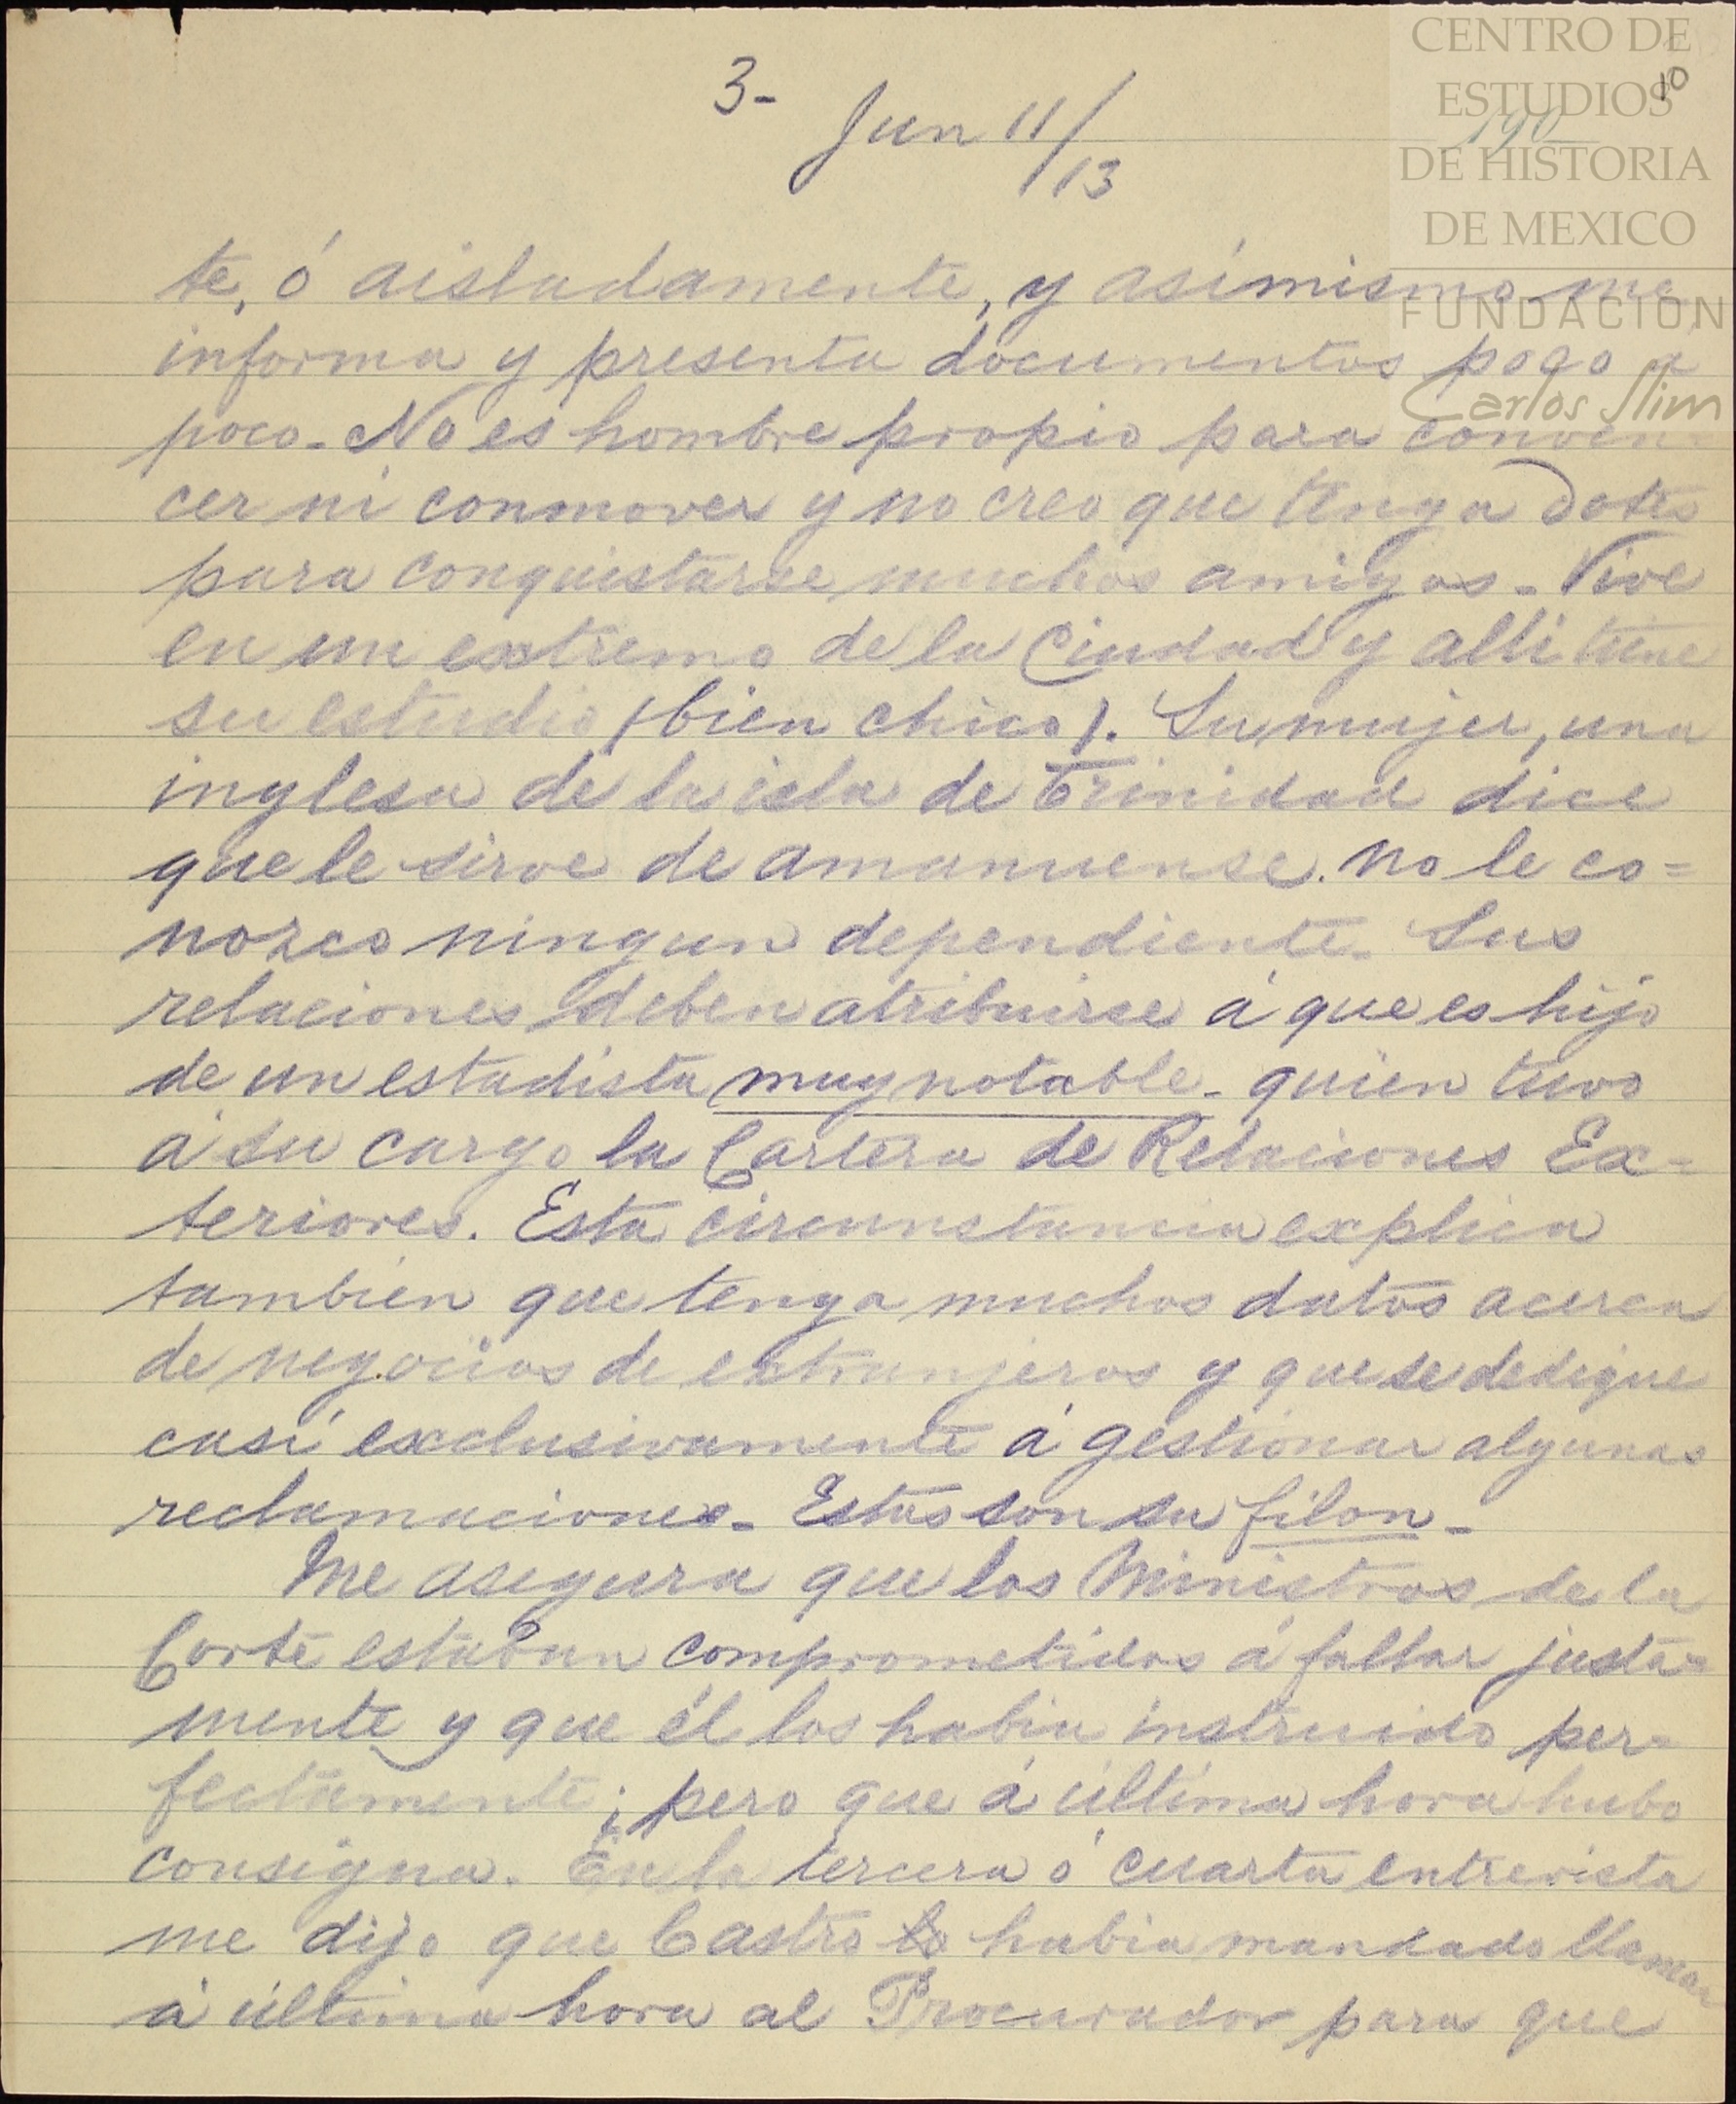 CENTRO DE
ESTUDIOS
DE HISTORIA
DE MEXICO
FUNDACION
Carlos Slim
10
190
3-
Jun 11/13
te, ó aisladamente, y asimismo me
informa y presenta documentos poco á
poco. No es hombre propio para conven-
cer ni conmover y no creo que tenga dotes
para conquistarse muchos amigos. Vive
en un extremo de la Ciudad y alli tiene
su estudio (bien chico). Su mujer, una
inglesa de la isla de Trinidad dice
que le sirve de amanuense. no le co=
nozco ningun dependiente. Sus
relaciones deben atribuirse á que es hijo
de un estadista muy notable - quien tuvo
á su cargo la Cartera de Relaciones Ex-
teriores. Esta circunstancia explica
tambien que tenga muchos datos acerca
de negocios de extranjeros y que se dedique
casi exclusivamente á gestionar algunas
reclamaciones. Estas son su filon -
Me asegura que los Ministros de la
Corte estaban comprometidos á fallar justa=
mente y que él los habia instruido per=
fectamente; pero que á última hora hubo
consigna. En la tercera ó cuarta entrevista
me dijo que Castro lo habia mandado llamar
á última hora al Procurador para que